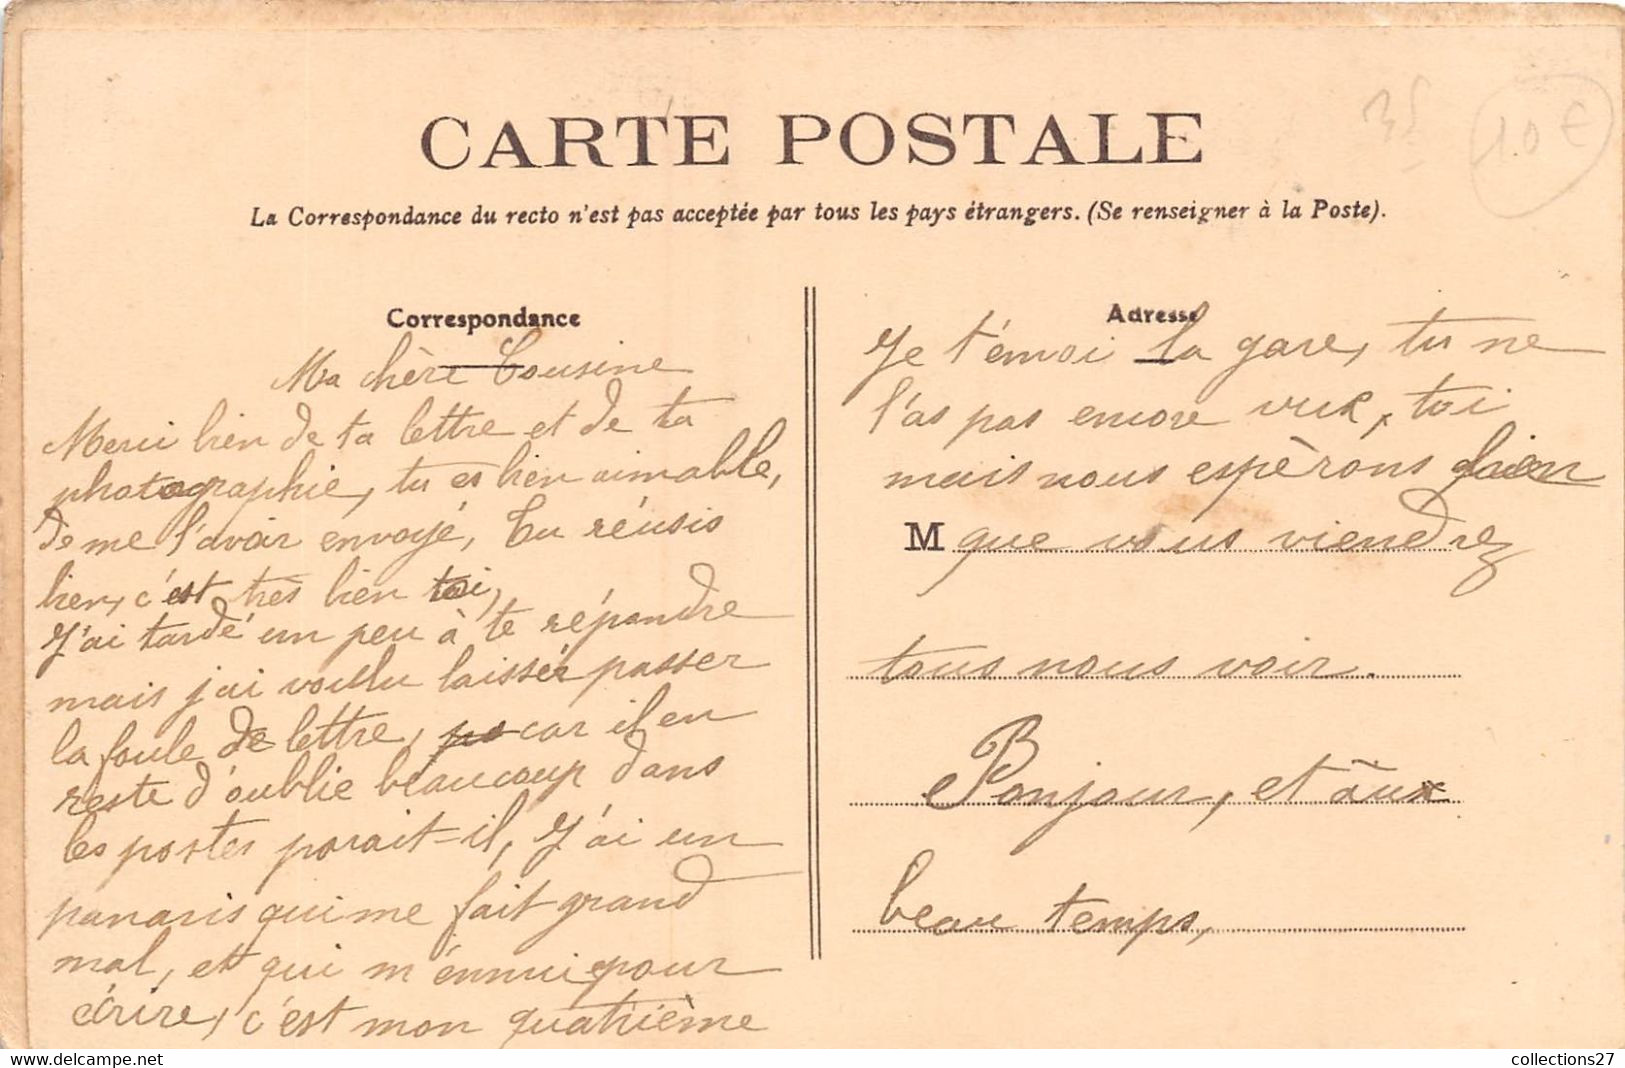 35
10 €
CARTE POSTALE
La Correspondance du recto n'est pas acceptée par tous les pays étrangers. (Se renseigner à la Poste).
Correspondance
Ma chère Cousine
Merci bien de ta lettre et de ta
photographie, tu es bien aimable,
de me l'avoir envoyé, Tu réusis
bien, c'est très bien toi,
J'ai tardé un peu à te répondre
mais j'ai voulu laisser passer
la foule de lettre, car il en
reste d'oublie beaucoup dans
les postes parait-il, J'ai un
panaris qui me fait grand
mal, et qui m'ennuie pour
écrire, c'est mon quatrième
Adresse
Je t'envoi la gare, tu ne
l'as pas encore vue, toi
mais nous espèrons bien
M que vous viendrez
tous nous voir.
Bonjour, et aux
beau temps,
collections27